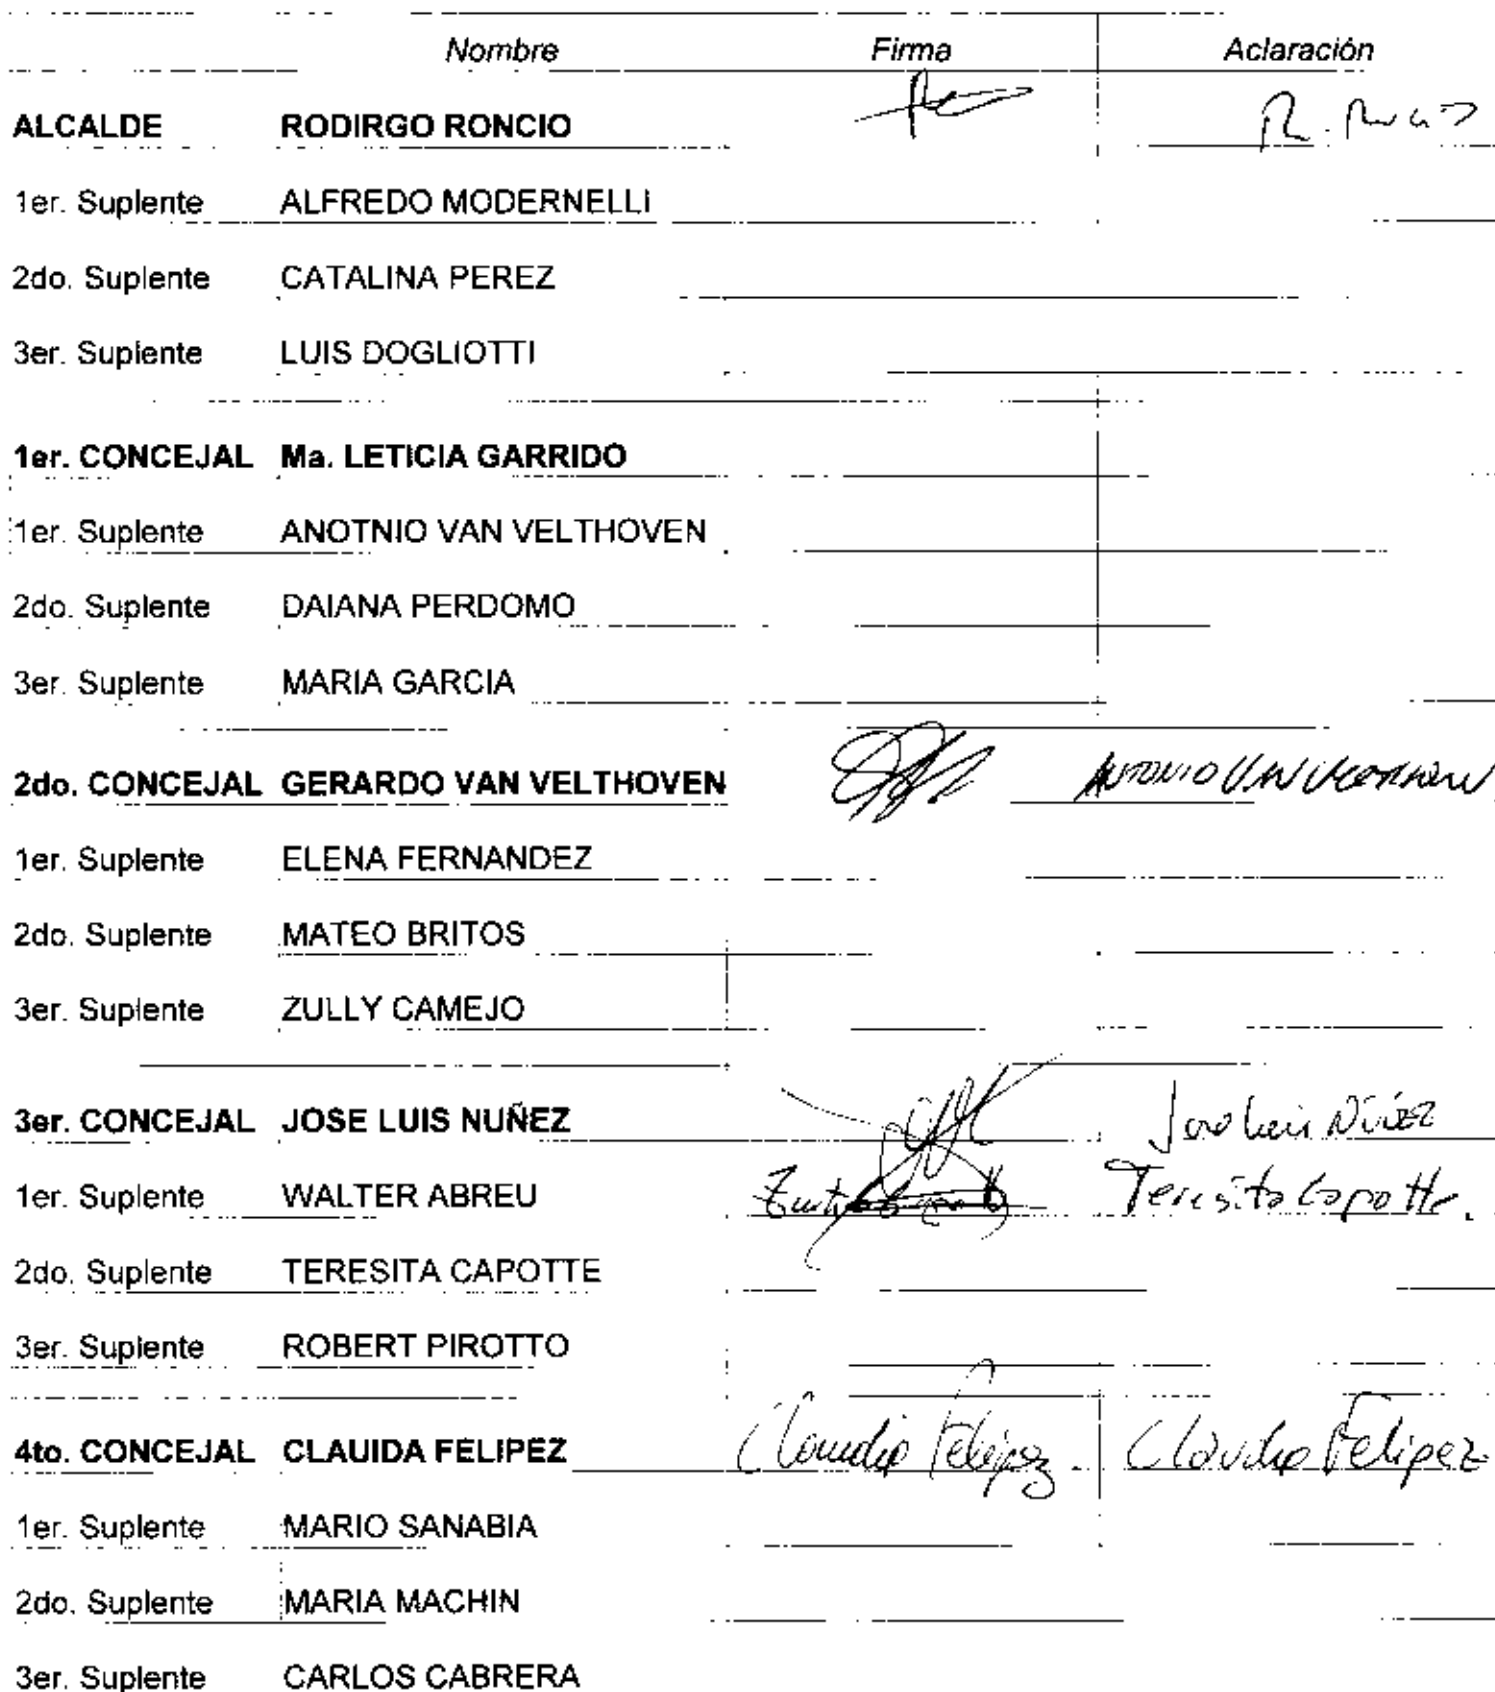 Nombre Firma Aclaración
ALCALDE RODIRGO RONCIO R.
1er. Suplente ALFREDO MODERNELLI
2do. Suplente CATALINA PEREZ
3er. Suplente LUIS DOGLIOTTI
1er. CONCEJAL Ma. LETICIA GARRIDO
1er. Suplente ANOTNIO VAN VELTHOVEN
2do. Suplente DAIANA PERDOMO
3er. Suplente MARIA GARCIA
2do. CONCEJAL GERARDO VAN VELTHOVEN ANTONIO VAN VELTHOVEN
1er. Suplente ELENA FERNANDEZ
2do. Suplente MATEO BRITOS
3er. Suplente ZULLY CAMEJO
3er. CONCEJAL JOSE LUIS NUÑEZ Jose Luis Núñez
1er. Suplente WALTER ABREU Teresita Capotte.
2do. Suplente TERESITA CAPOTTE
3er. Suplente ROBERT PIROTTO
4to. CONCEJAL CLAUIDA FELIPEZ Claudia Felipez Claudia Felipez
1er. Suplente MARIO SANABIA
2do. Suplente MARIA MACHIN
3er. Suplente CARLOS CABRERA